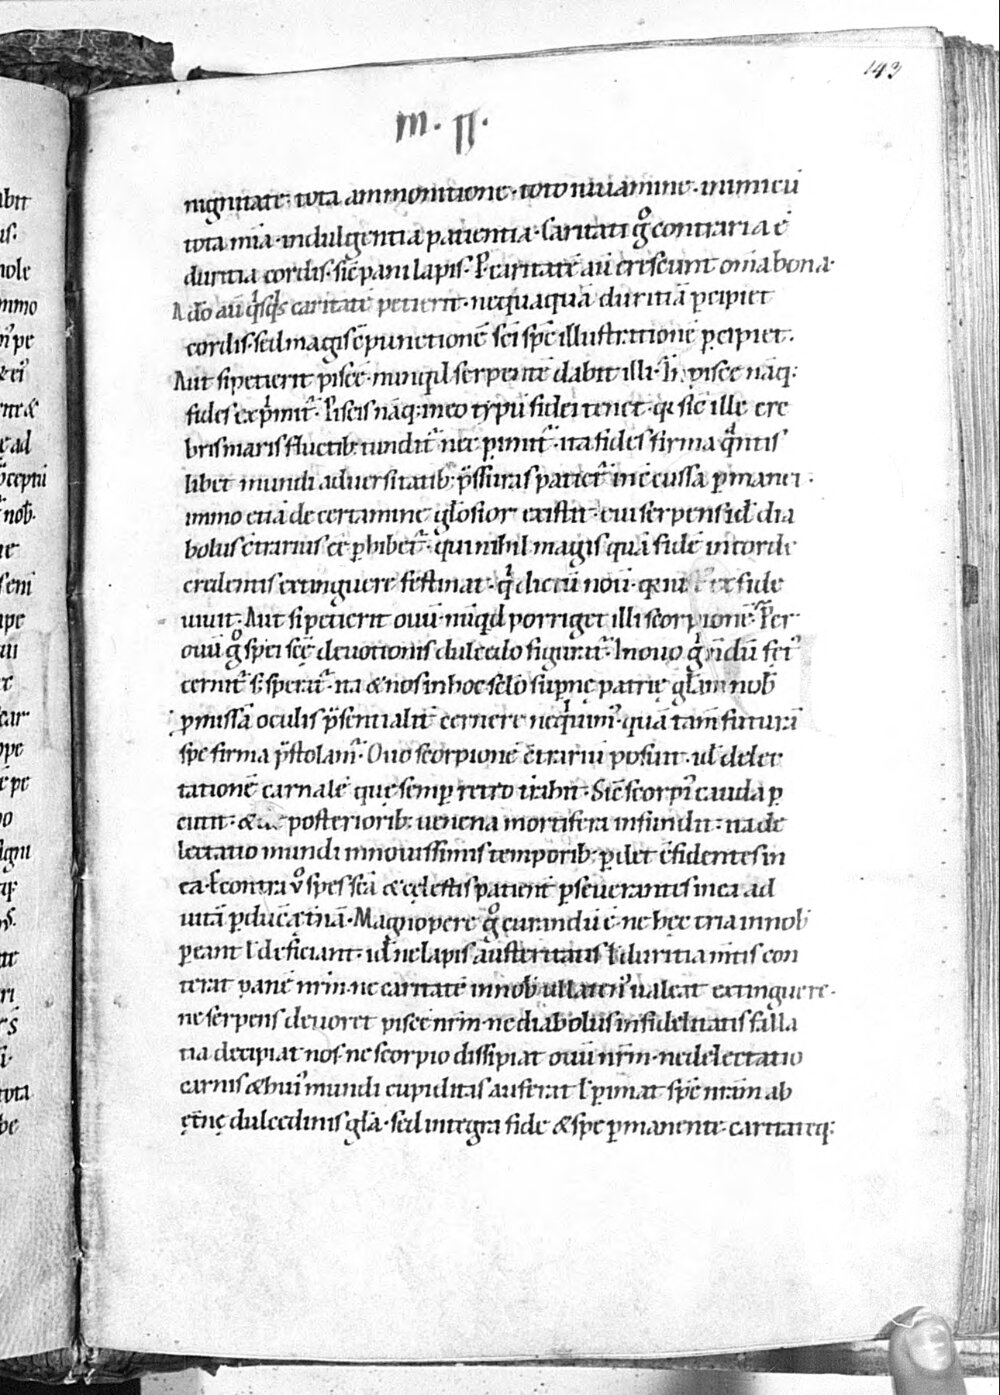 143
m. II.
nignitate. tota ammonitione. toto iuuamine. inimicū
tota mīa. indulgentia patientia. Caritati gͦ contraria ē
duritia cordis. sic̄ pani lapis. Ꝑ caritatē aū crescunt om̄ia bona.
A dō aū qͥsqͥs caritatē petierit. nequaquā duritiā ꝑcipiet
cordis. sed magis cōpunctionē sc̄i sp̄c illustrationē ꝑcipiet.
Aut si petierit piscē. nunqd serpentē dabit illi. In pisce nāq;
fides exp̄mit᷑. Piscis nāq; in eo typū fidei tenet. qͣ sic̄ ille cre
bris maris fluctib; tundit᷑ nec p̄mit᷑. ita fides firma qͣntis
libet mundi aduersitatib; p̄ssuras patiet᷑ inc̄cussa ꝑmanet.
immo etiā de certamine gl̄osior existit. cui serpens id ̄ dia
bolus c̄trarius eē ꝑhibet᷑. qui nihil magis quā fidē in corde
credentis extinguere festinat. qͥ dictū nouit. qͣ iust᷒ ex fide
uiuit. Aut si petierit ouū. nūqd porriget illi scorpionē. Per
ouū gͦ spei sc̄ę deuotionis dulcedo figurat᷑. In ouo qͥ nōdū fet᷒
cernit᷑ s; sperat᷑. ita & nos in hoc sc̄lo supnę patrię gl̄am nob̄
ꝓmissā oculis p̄sentialit̄ cernere nequim᷒. quā tam̄ futurā
spe firma p̄stolam᷒. Ouo scorpionē c̄trariū posuit. ul̄ delec
tationē carnalē que semꝑ retro trahit. Sic̄ scorpi᷒ cauda ꝑ
cutit. & posteriorib; uenena mortifera infundit. ita de
lectatio mundi in nouissimis temporib; ꝑdet c̄fidentes in
ea. Econtra v̊ spes sc̄a & cęlestis patient̄ ꝑseuerantes in ea ad
uitā ꝑducet et̄nā. Magnopere gͦ curandū ē. ne hęc tria in nob̄
ꝑeant ł deficiant. id̄ ne lapis austeritatis ł duritia m̄tis con
terat panē nr̄m. ne caritatē in nob̄ ullaten᷒ ualeat extinguere.
ne serpens deuoret piscē nr̄m. ne diabolus infidelitatis falla
tia decipiat nos. ne scorpio dissipiat ouū nr̄m. ne delectatio
carnis & hui᷒ mundi cupiditas auferat ł p̄mat spē nr̄am ab
et̄nę dulcedinis gl̄a. sed integra fide & spe ꝑmanente. caritateq;